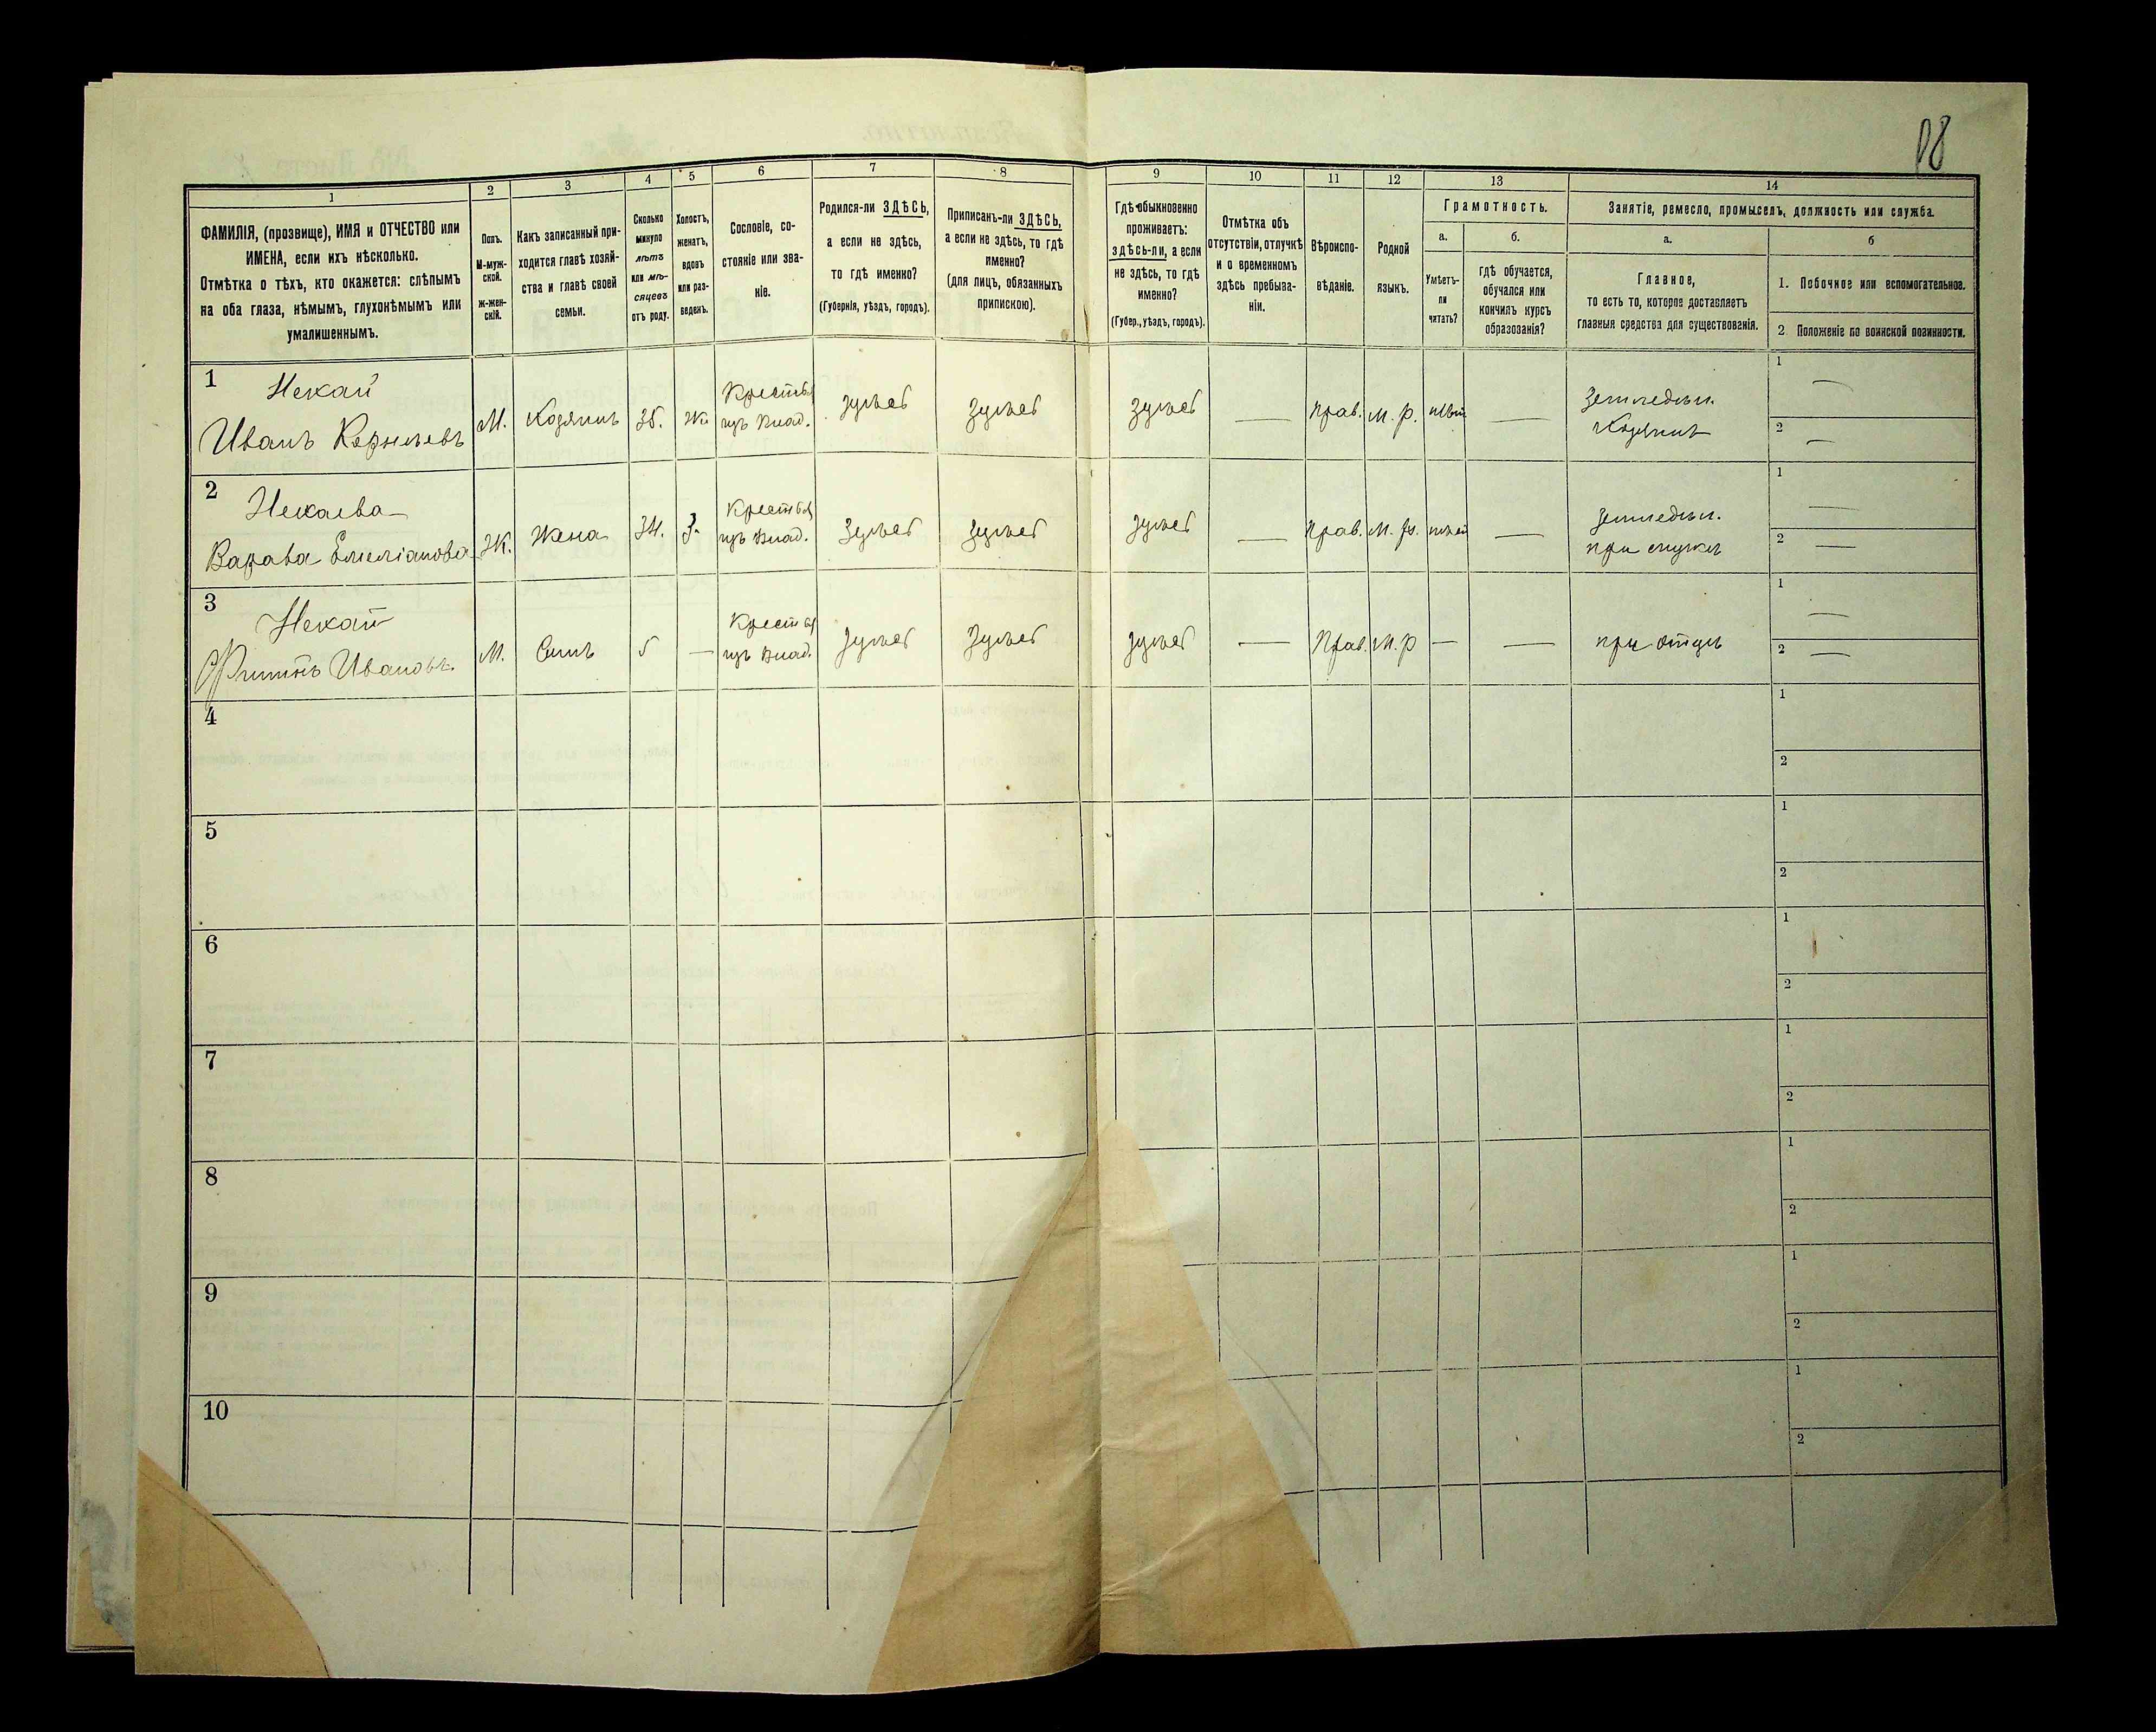 98
1
2
3
4
5
6
7
8
9
10
11
12
13
14
ФАМИЛІЯ, (прозвище), ИМЯ и ОТЧЕСТВО или
ИМЕНА, если ихъ нѣсколько.
Отмѣтка о тѣхъ, кто окажется: слѣпымъ
на оба глаза, нѣмымъ, глухонѣмымъ или
умалишеннымъ.
Полъ.
М-муж-
ской.
ж-жен-
скій.
Какъ записанный при-
ходится главѣ хозяй-
ства и главѣ своей
семьи.
Сколько
минуло
лѣтъ
или мѣ-
сяцевъ
отъ роду.
Холостъ,
женатъ,
вдовъ
или раз-
веденъ.
Сословіе, со-
стояніе или зва-
ніе.
Родился-ли ЗДѢСЬ,
а если не здѣсь,
то гдѣ именно?
(Губернія, уѣздъ, городъ).
Приписанъ-ли ЗДѢСЬ,
а если не здѣсь, то гдѣ
именно?
(для лицъ, обязанныхъ
припискою).
Гдѣ обыкновенно
проживаетъ:
здѣсь-ли, а если
не здѣсь, то гдѣ
именно?
(Губер., уѣздъ, городъ).
Отмѣтка объ
отсутствіи, отлучкѣ
и о временномъ
здѣсь пребыва-
ніи.
Вѣроиспо-
вѣданіе.
Родной
языкъ.
Грамотность.
а.
Умѣетъ-
ли
читать?
б.
гдѣ обучается,
обучался или
кончилъ курсъ
образованія?
Занятіе, ремесло, промыселъ, должность или служба.
а.
Главное,
то есть то, которое доставляетъ
главныя средства для существованія.
б
1. Побочное или вспомогательное.
2. Положеніе по воинской повинности.
1
Некай
Иванъ Корнѣевъ
М.
Хозяинъ
35.
Же
Крестья
изъ Влад.
Здѣсь
Здѣсь
Здѣсь
—
Прав.
М. р.
нѣт
—
Земледѣл.
Хозяинъ
1 —
2 —
2
Некаева
Варава Емеліанова
Ж.
Жена
34.
З.
Крестья
изъ Влад.
Здѣсь
Здѣсь
Здѣсь
—
Прав.
М. р.
нѣт
—
Земледѣл.
при мужѣ
1 —
2 —
3
Некай
Филипъ Ивановъ.
М.
Сынъ
5
—
Крестья
изъ Влад.
Здѣсь
Здѣсь
Здѣсь
—
Прав.
М. р
—
—
при отцѣ
1 —
2 —
4
1
2
5
1
2
6
1
2
7
1
2
8
1
2
9
1
2
10
1
2